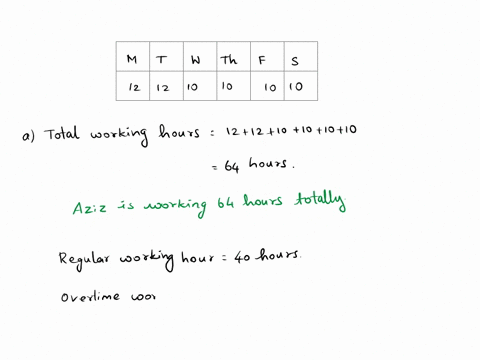 M T W Th F S
12 12 10 10 10 10
a) Total working hours = 12+12+10+10+10+10
= 64 hours.
Aziz is working 64 hours totally
Regular working hour = 40 hours.
Overtime wor